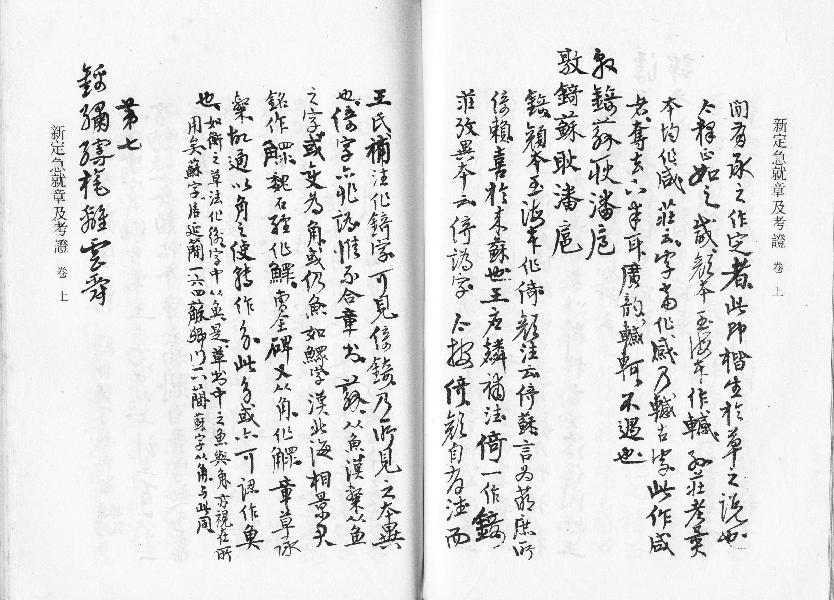 新定急就章及考證 卷上
間有承之作定者此即楷生於草之說也
今釋正如之 咸顏本玉海本作轗 孫莊考異
本均作咸 莊云字當作感乃轗古字此作咸
者奪去下半耳廣韻轗軻不遇也
敦錡蘇耿潘扈
敦錡蘇耿潘扈
錡顏本玉海本作倚顏注云倚蘇言為 庶所
倚賴喜於來蘇也王應麟補注倚一作錡
莊考異本云倚誤字 今按倚顏自有注而
王氏補注作錡字可見倚錡乃所見之本異
也倚字亦非誤惟不合章書 蘇从魚漢隸从魚
之字或变為角或仍魚如鰥字漢北海相景君
銘作 魏石經作鰥 碑又从角作 章草承
隸故通以角之使轉作 此 或亦可認作
也如 之草法作 字中从魚是草書中之魚與角亦視在所
用矣蘇字居延簡一六四蘇 一簡蘇字从角与此同
第七
錦繡縵 離雲爵
新定急就章及考證 卷上